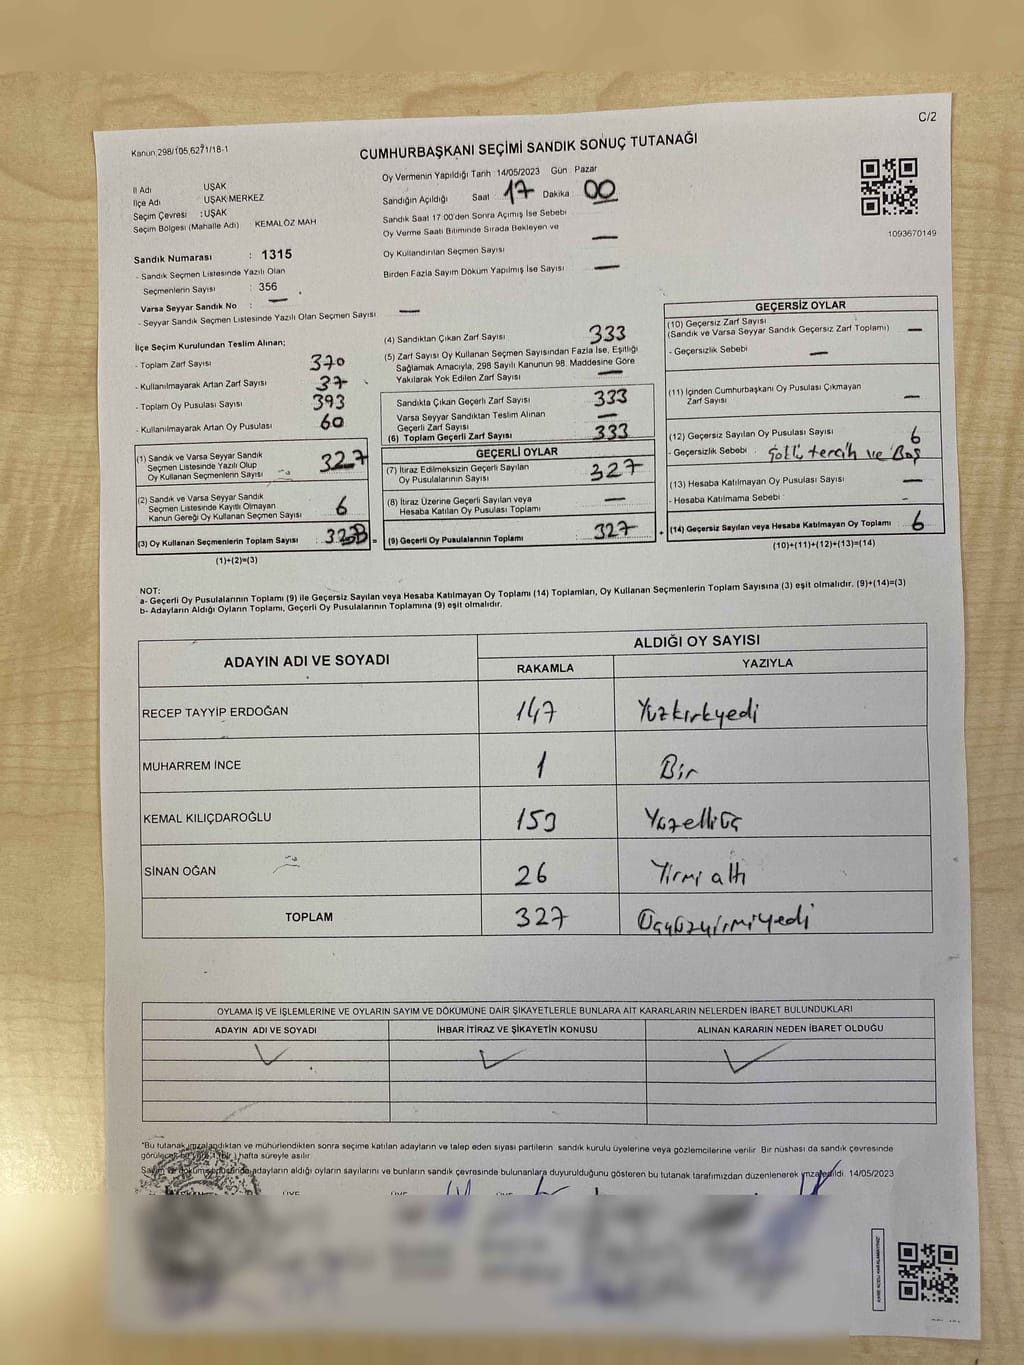 C/2
Kanun 298/105,6271/18-1
CUMHURBAŞKANI SEÇİMİ SANDIK SONUÇ TUTANAĞI
İl Adı UŞAK
İlçe Adı UŞAK MERKEZ
Seçim Çevresi : UŞAK
Seçim Bölgesi (Mahalle Adı) KEMALÖZ MAH
Oy Vermenin Yapıldığı Tarih 14/05/2023 Gün Pazar
Sandığın Açıldığı Saat 17 Dakika 00
Sandık Saat 17 00'den Sonra Açımış İse Sebebi
Oy Verme Saati Bitiminde Sırada Bekleyen ve
Oy Kullandırılan Seçmen Sayısı —
Birden Fazla Sayım Döküm Yapılmış İse Sayısı —
1093670149
Sandık Numarası : 1315
- Sandık Seçmen Listesinde Yazılı Olan
Seçmenlerin Sayısı : 356
Varsa Seyyar Sandık No : —
- Seyyar Sandık Seçmen Listesinde Yazılı Olan Seçmen Sayısı —
İlçe Seçim Kurulundan Teslim Alınan;
- Toplam Zarf Sayısı 370
- Kullanılmayarak Artan Zarf Sayısı 37
- Toplam Oy Pusulası Sayısı 393
- Kullanılmayarak Artan Oy Pusulası 60
(1) Sandık ve Varsa Seyyar Sandık
Seçmen Listesinde Yazılı Olup
Oy Kullanan Seçmenlerin Sayısı 327
(2) Sandık ve Varsa Seyyar Sandık
Seçmen Listesinde Kayıtlı Olmayan
Kanun Gereği Oy Kullanan Seçmen Sayısı 6
(3) Oy Kullanan Seçmenlerin Toplam Sayısı :
(1)+(2)=(3)
(4) Sandıktan Çıkan Zarf Sayısı 333
(5) Zarf Sayısı Oy Kullanan Seçmen Sayısından Fazla İse, Eşitliği
Sağlamak Amacıyla, 298 Sayılı Kanunun 98. Maddesine Göre
Yakılarak Yok Edilen Zarf Sayısı —
Sandıkta Çıkan Geçerli Zarf Sayısı 333
Varsa Seyyar Sandıktan Teslim Alınan
Geçerli Zarf Sayısı —
(6) Toplam Geçerli Zarf Sayısı 333
GEÇERLİ OYLAR
(7) İtiraz Edilmeksizin Geçerli Sayılan
Oy Pusulalarının Sayısı 327
(8) İtiraz Üzerine Geçerli Sayılan veya
Hesaba Katılan Oy Pusulası Toplamı —
= (9) Geçerli Oy Pusulalarının Toplamı 327
GEÇERSİZ OYLAR
(10) Geçersiz Zarf Sayısı
(Sandık ve Varsa Seyyar Sandık Geçersiz Zarf Toplamı) —
- Geçersizlik Sebebi —
(11) İçinden Cumhurbaşkanı Oy Pusulası Çıkmayan
Zarf Sayısı —
(12) Geçersiz Sayılan Oy Pusulası Sayısı 6
- Geçersizlik Sebebi : tercih ve Boş
(13) Hesaba Katılmayan Oy Pusulası Sayısı —
- Hesaba Katılmama Sebebi : -
+ (14) Geçersiz Sayılan veya Hesaba Katılmayan Oy Toplamı 6
(10)+(11)+(12)+(13)=(14)
NOT:
a- Geçerli Oy Pusulalarının Toplamı (9) ile Geçersiz Sayılan veya Hesaba Katılmayan Oy Toplamı (14) Toplamları, Oy Kullanan Seçmenlerin Toplam Sayısına (3) eşit olmalıdır. (9)+(14)=(3)
b- Adayların Aldığı Oyların Toplamı, Geçerli Oy Pusulalarının Toplamına (9) eşit olmalıdır.
ADAYIN ADI VE SOYADI
ALDIĞI OY SAYISI
RAKAMLA YAZIYLA
RECEP TAYYİP ERDOĞAN 147 Yüzkırkyedi
MUHARREM İNCE 1 Bir
KEMAL KILIÇDAROĞLU 153 Yüzelliüç
SİNAN OĞAN 26 Yirmi altı
TOPLAM 327 Üçyüzyirmiyedi
OYLAMA İŞ VE İŞLEMLERİNE VE OYLARIN SAYIM VE DÖKÜMÜNE DAİR ŞİKAYETLERLE BUNLARA AİT KARARLARIN NELERDEN İBARET BULUNDUKLARI
ADAYIN ADI VE SOYADI İHBAR İTİRAZ VE ŞİKAYETİN KONUSU ALINAN KARARIN NEDEN İBARET OLDUĞU
"Bu tutanak imzalandıktan ve mühürlendikten sonra seçime katılan adayların ve talep eden siyasi partilerin sandık kurulu üyelerine veya gözlemcilerine verilir. Bir nüshası da sandık çevresinde
hafta süreyle asılır.
adayların aldığı oyların sayılarını ve bunların sandık çevresinde bulunanlara duyurulduğunu gösteren bu tutanak tarafımızdan düzenlenerek imzalandı. 14/05/2023